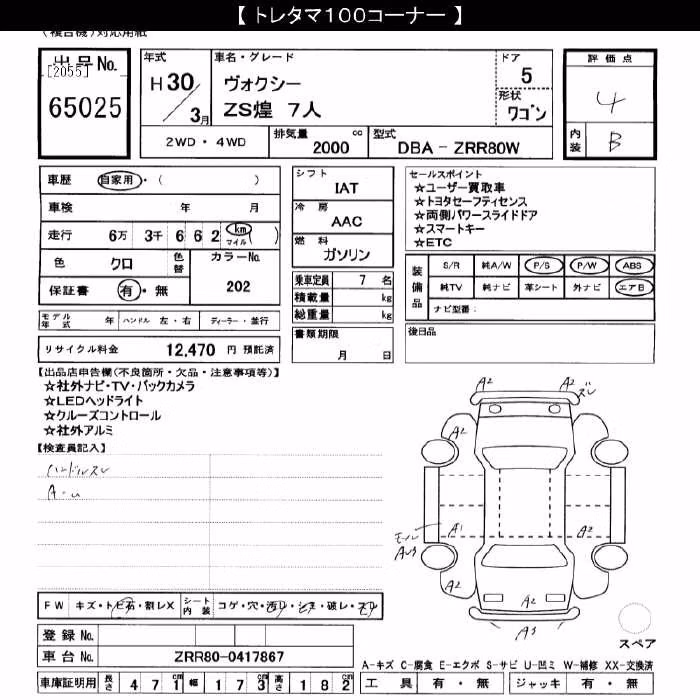 【 トレタマ100コーナー 】
(複合機)対応用紙
出品No.
[2055]
65025
年式
H30/3月
車名・グレード
ヴォクシー
ZS煌 7人
ドア
5
形状
ワゴン
評価点
4
内装
B
2WD・4WD
排気量
2000 cc
型式
DBA - ZRR80W
車歴 自家用・( )
車検 年 月
走行 6万 3千 6 6 2 km マイル ( )
色 クロ 色替
カラーNo.
202
保証書 有・無
シフト
IAT
冷房
AAC
燃料
ガソリン
乗車定員 7 名
積載量 kg
総重量 kg
書類期限
月 日
セールスポイント
☆ユーザー買取車
☆トヨタセーフティセンス
☆両側パワースライドドア
☆スマートキー
☆ETC
装備品
S/R 純A/W P/S P/W ABS
純TV 純ナビ 革シート 外ナビ エアB
ナビ型番:
後日品
モデル年式 年 ハンドル 左・右 ディーラー・並行
リサイクル料金 12,470 円 預託済
【出品店申告欄(不良箇所・欠品・注意事項等)】
☆社外ナビ・TV・バックカメラ
☆LEDヘッドライト
☆クルーズコントロール
☆社外アルミ
【検査員記入】
ハンドルスレ
A-u
A2
A2
ズレ
A2
A1
A2
モール
A2
A2
A2
A3
FW キズ・トビ石・割レX
シート内装 コゲ・穴・汚レ・シミ・破レ・スレ
登録No.
車台No. ZRR80-0417867
スペア
A-キズ C-腐食 E-エクボ S-サビ U-凹ミ W-補修 XX-交換済
車庫証明用 長さ 4 7 1 cm 幅 1 7 3 cm 高さ 1 8 2 cm
工具 有・無 ジャッキ 有・無